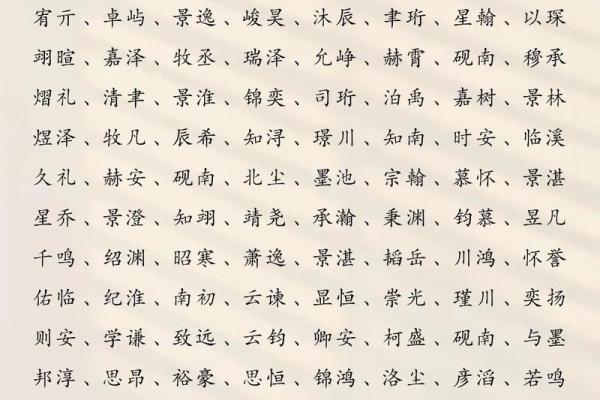 宥亓、卓屿、景逸、峻昊、沐辰、聿珩、星翰、以琛
翊暄、嘉泽、牧丞、瑞泽、允峥、赫霄、砚南、穆承
熠礼、清聿、景淮、锦奕、司珩、泊禹、嘉树、景林
煜泽、牧凡、辰希、知浔、璟川、知南、时安、临溪
久礼、赫安、砚南、北尘、墨池、宗翰、慕怀、景湛
星乔、景澄、知翊、靖尧、承瀚、秉渊、钧慕、昱凡
千鸣、绍渊、昭寒、萧逸、景湛、韬岳、川鸿、怀誉
佑临、纪淮、南初、云谏、显恒、崇光、瑾川、奕扬
则安、学谦、致远、云钧、卿安、柯盛、砚南、与墨
邦淳、思昂、裕豪、思恒、锦鸿、洛尘、彦滔、若鸣